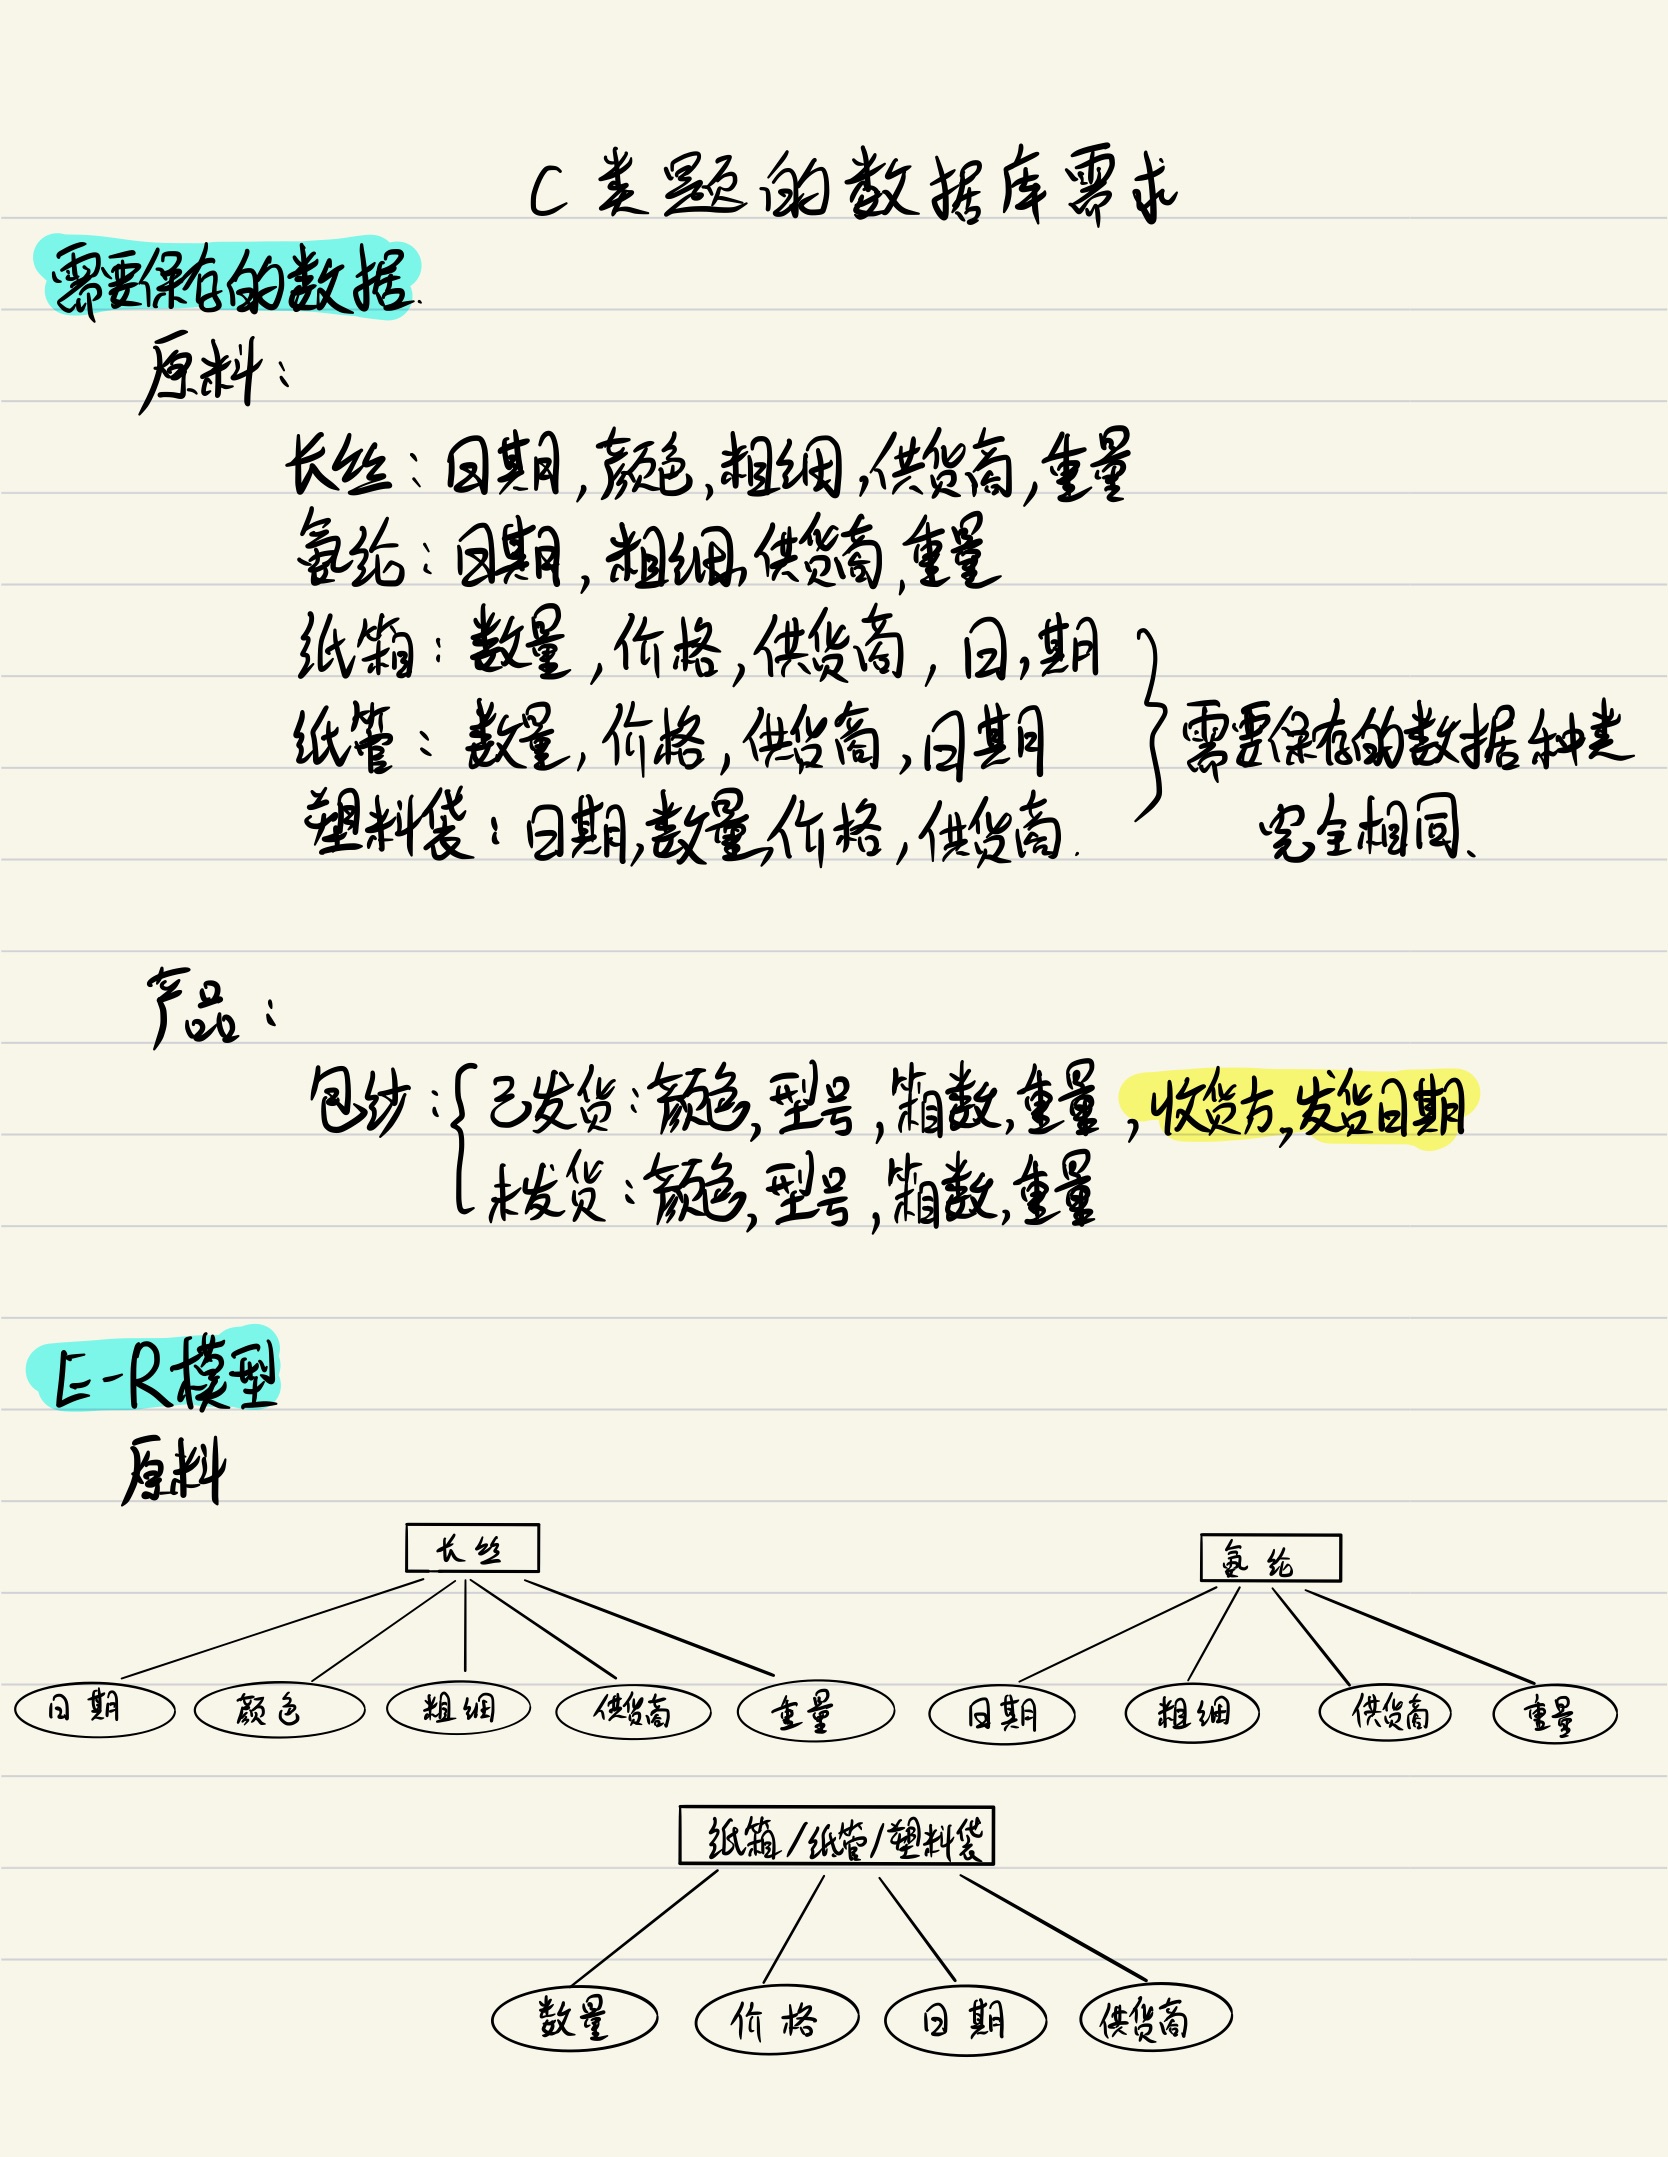 C类题的数据库需求
需要保存的数据.
原料:
长丝:日期,颜色,粗细,供货商,重量
氨纶:日期,粗细,供货商,重量
纸箱:数量,价格,供货商,日,期
纸管:数量,价格,供货商,日期
需要保存的数据种类
塑料袋:日期,数量,价格,供货商.
完全相同、
产品:
包纱:
已发货:颜色,型号,箱数,重量,收货方,发货日期
未发货:颜色,型号,箱数,重量
E-R模型
原料
长丝
氨纶
日期 颜色 粗细 供货商 重量 日期 粗细 供货商 重量
纸箱/纸管/塑料袋
数量 价格 日期 供货商